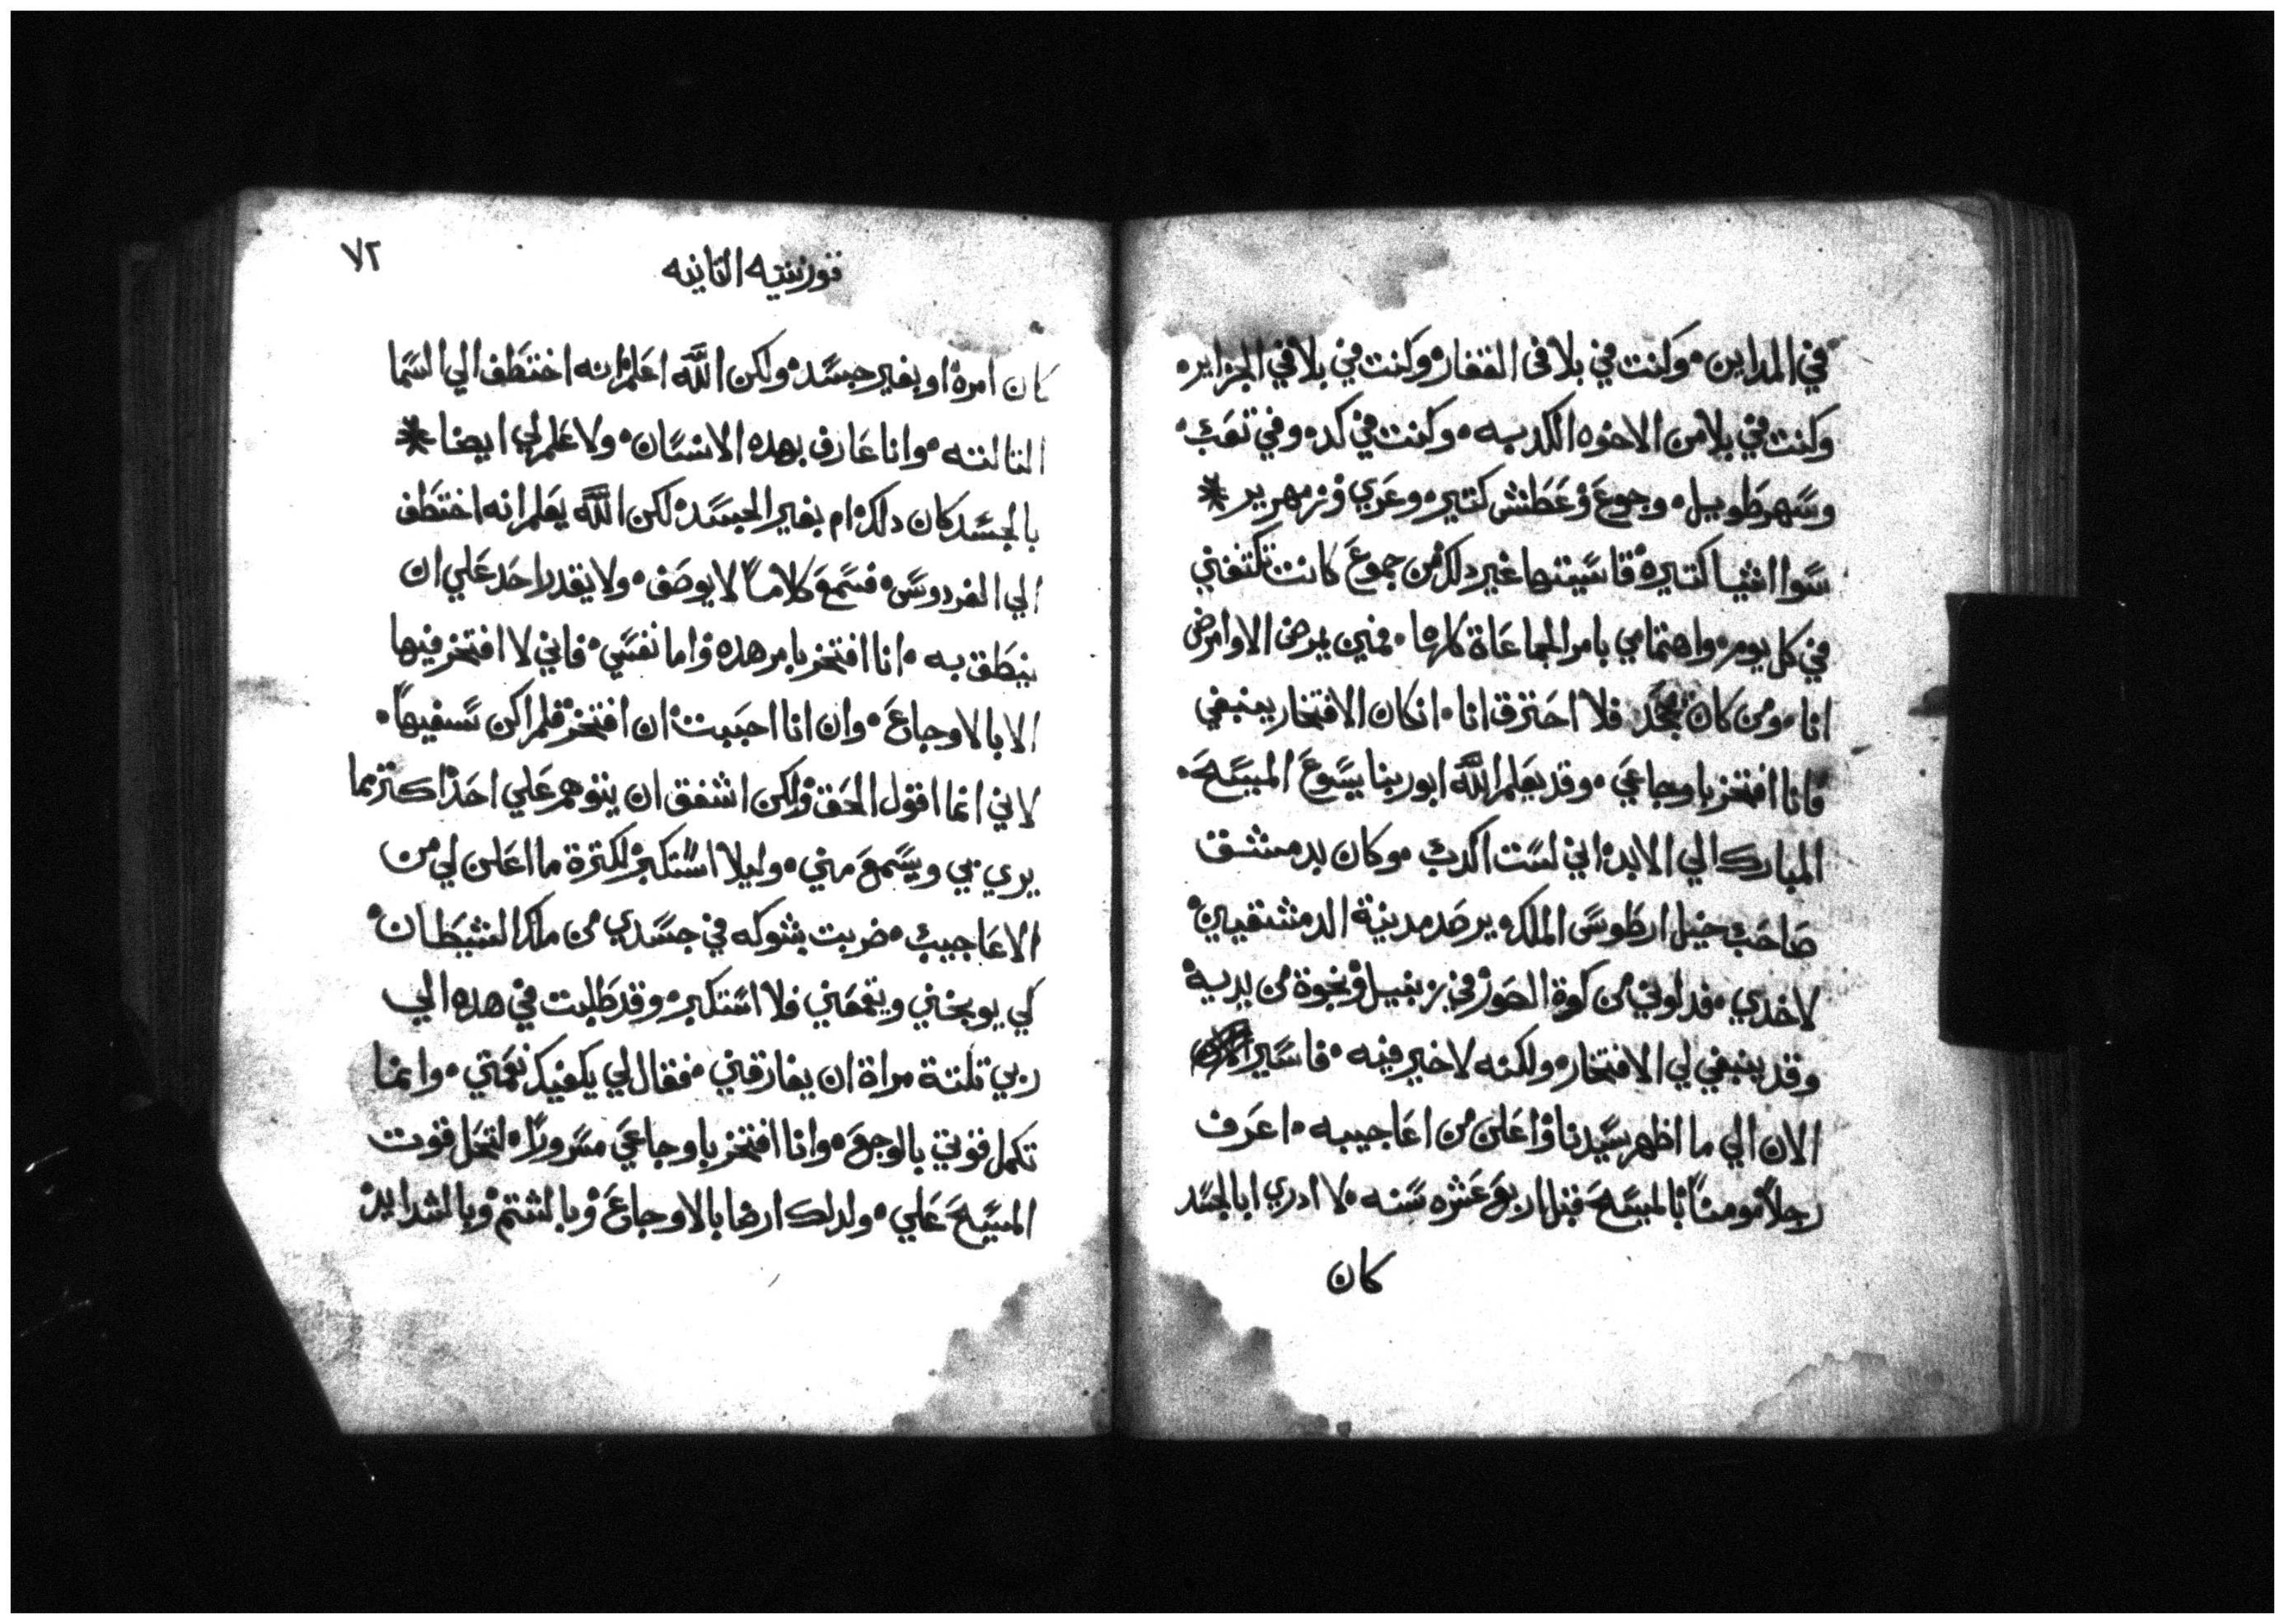 في المداين۰ وكنت في بلا فى القفار۰ وكنت في بلا في الجزاير۰
وكنت في بلا من الاخوه الكدبه۰ وكنت في كد۰ وفي تعب۰
وسهر طويل۰ وجوع وعطش كتير۰ وعري وزمهرير *
سوا اشيا كتيره قاسيتها غير دلك من جموع كانت تكتنفني
في كل يوم۰ واهتمامي بامر الجماعاة كلها۰ فمين يمرض الا وامرض
انا۰ ومن كان فلا احترق انا۰ ان كان الافتخار ينبغي
فانا افتخر باوجاعي۰ وقد يعلم الله ابو ربنا يسوع المسيح۰
المبارك الي الابد۰ اني لست اكدب۰ وكان بدمشق
صاحب خيل ارطوس الملك۰ يرصد مدينة الدمشقيين۰
لاخدي۰ فدلوني من كوة الصور في زنبيل ونجوة من يديه۰
وقد ينبغي لي الافتخار۰ ولكنه لا خير فيه۰ فاسير
الان الي ما اظهر سيدنا واعلن من اعاجيبه۰ اعرف
رجلاً مومناً بالمسيح قبل اربع عشره سنه۰ لا ادري ابالجسد
كان
قورنتيه التانيه
٧٢
كان امره۰ او بغير جسد۰ ولكن الله اعلم۰ انه اختطف الي السما
التالته۰ وانا عارف بهده الانسان۰ ولا علم لي ايضا *
بالجسد كان دلك۰ ام بغير الجسد۰ لكن الله يعلم انه اختطف
الي الفردوس۰ فسمع كلاماً لا يوصف۰ ولا يقدر احد علي ان
ينطق به۰ انا افتخر بامر هده۰ واما نفسي۰ فاني لا افتخر فيها
الا بالاوجاع۰ وان انا احببت۰ ان افتخر۰ فلم اكن سفيهاً۰
لاني انما اقول الحق۰ ولكن اشفق ان يتوهم علي احد۰ اكتر مما
يري بي ويسمع مني۰ وليلا استكبر۰ لكترة ما اعلن لي من
الاعاجيب۰ ضربت بشوكه في جسدي من ملك الشيطان۰
كي يوبخني ويقمعني فلا استكبر۰ وقد طلبت في هده الي
ربي تلتة مراة ان يفارقني۰ فقال لي يكفيك نعمتي۰ وانما
تكمل قوتي بالوجع۰ وانا افتخر باوجاعي مسروراً۰ لتحل قوت
المسيح علي۰ ولدلك ارضا بالاوجاع۰ وبالشتم۰ وبالشدايد۰